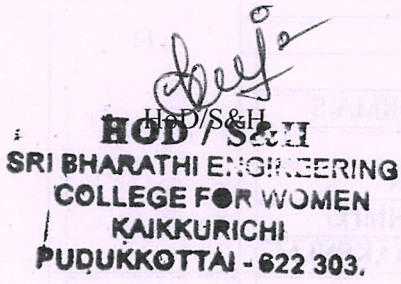 HoD/S&H
HOD / S&H
SRI BHARATHI ENGINEERING
COLLEGE FOR WOMEN
KAIKKURICHI
PUDUKKOTTAI - 622 303.